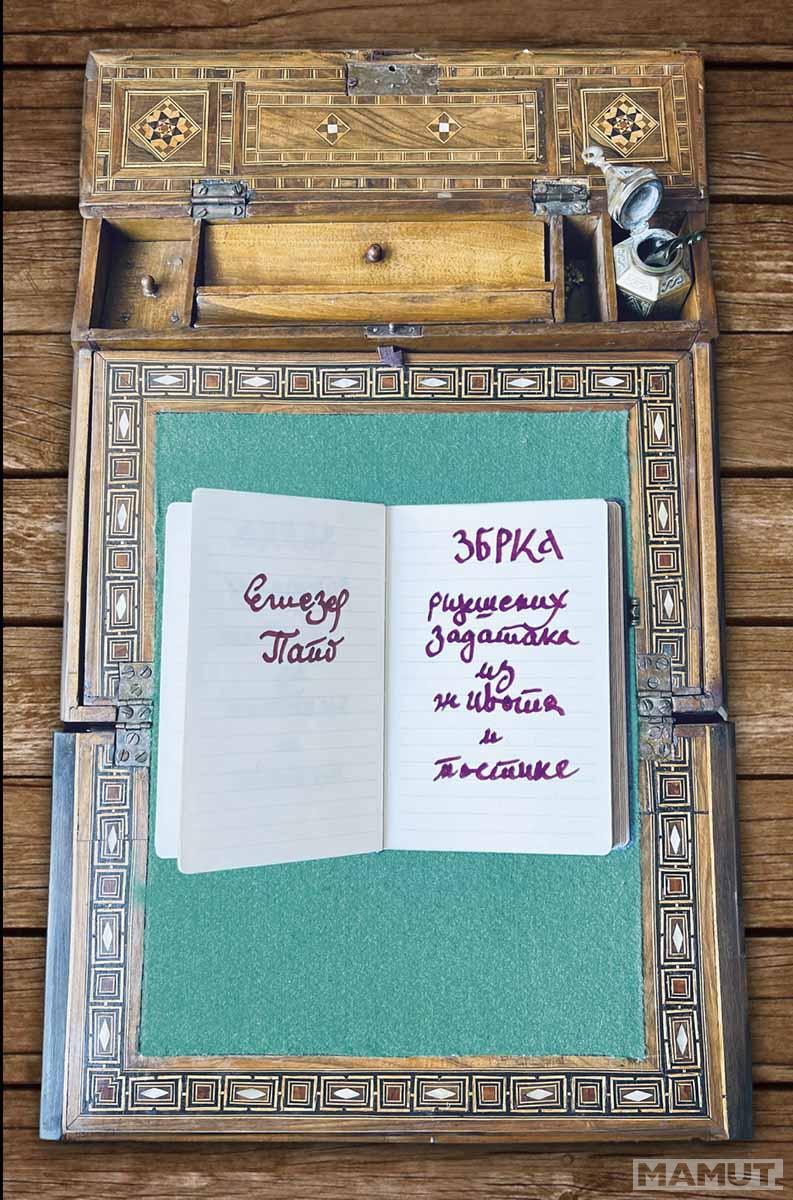 Елиезер
Папо
ЗБРКА
ријешених
задатака
из
живота
и
поетике
MAMUT